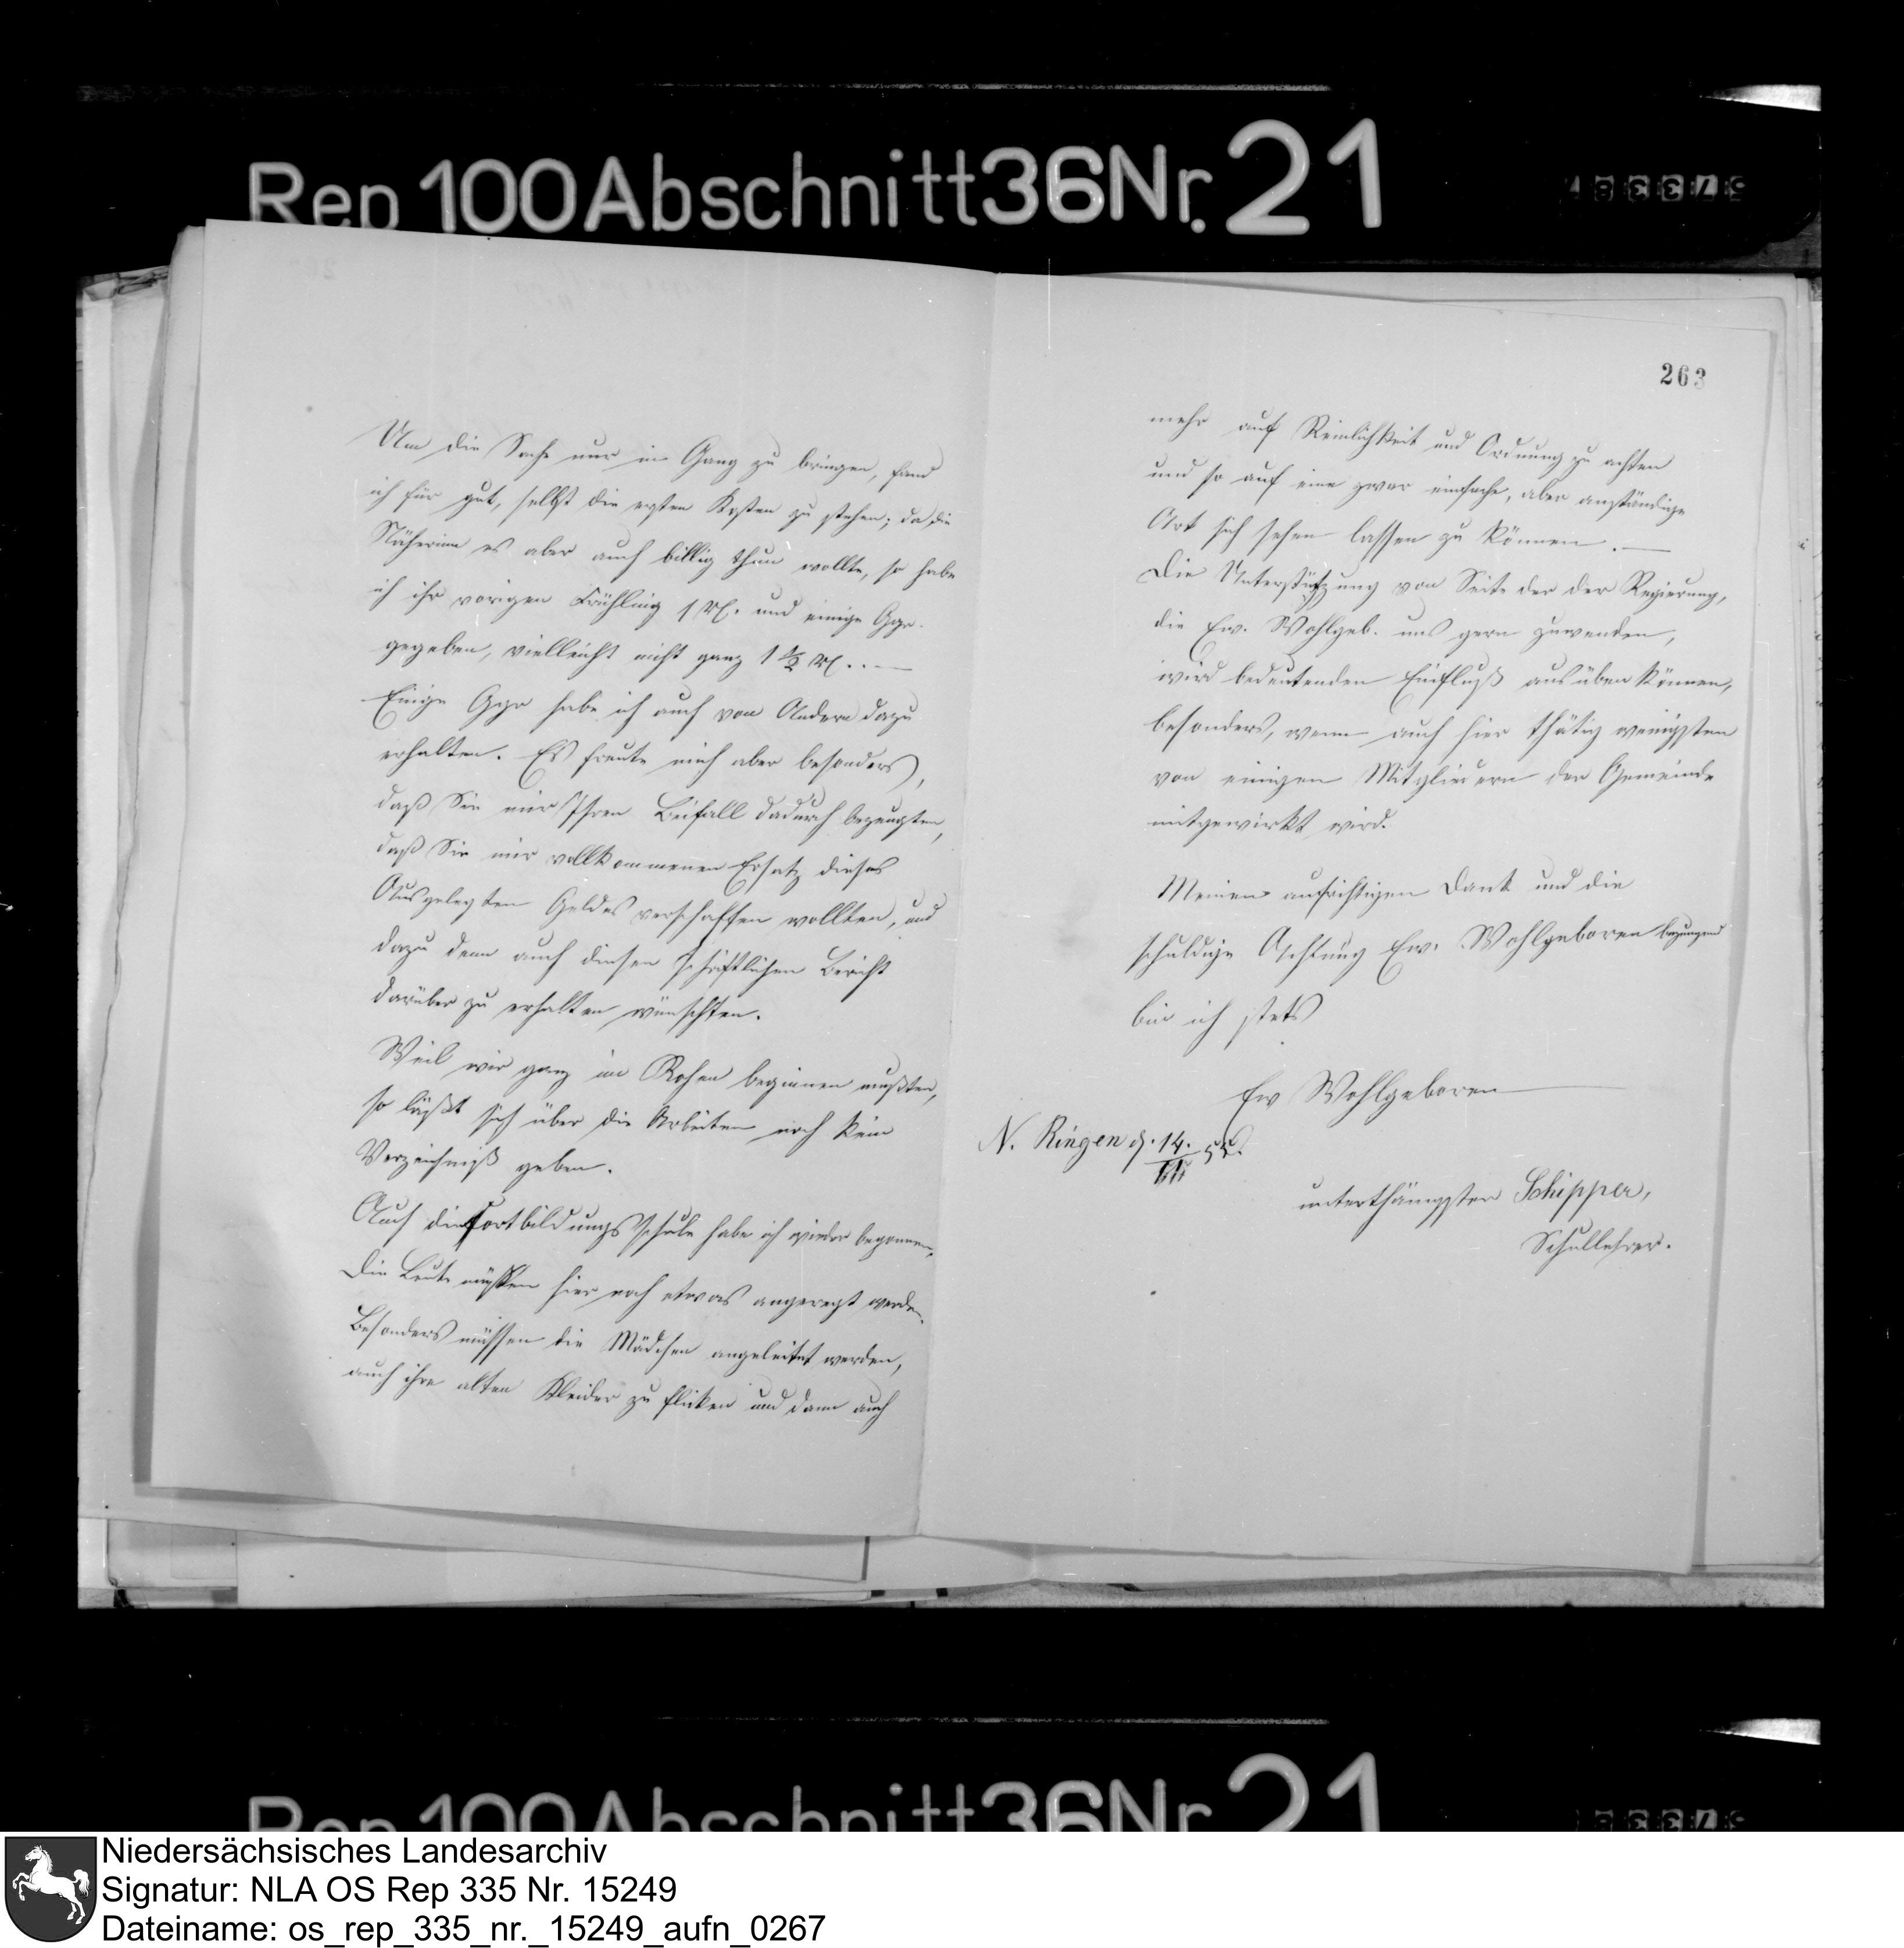 Rep 100 Abschnitt 36 Nr. 21
Um die Sache nur in Gang zu bringen, fand
ich für gut, selbst die ersten Kosten zu stehen; da die
Näherinn es aber auch billig thun wollte, so habe
ich ihr vorigen Frühling 1 Rl. und einige Ggr.
gegeben, vielleicht nicht ganz 1 1/2 Rl. . —
Einige Ggr habe ich auch von Andern dazu
erhalten. Es freute mich aber besonders,
daß Sie mir Ihren Beifall dadurch bezeugten,
daß Sie mir vollkommenen Ersatz dieses
Ausgelegten Geldes verschaffen wollten, und
dazu denn auch diesen schriftlichen Bericht
darüber zu erhalten wünschten.
Weil wir ganz im Rohen beginnen mußten,
so läßt sich über die Arbeiten noch kein
Verzeichniß geben.
Auch die Fortbildungsschule habe ich wieder begonnen.
Die Leute müssen hier noch etwas angeregt werden.
Besonders müssen die Mädchen angeleitet werden,
auch ihre alten Kleider zu flicken und dann auch
263
mehr auf Reinlichkeit und Ordnung zu achten
und so auf eine zwar einfache, aber anständige
Art sich sehen lassen zu können. —
Die Unterstützung von Seite der der Regierung,
die Ew. Wohlgeb. uns gern zuwenden,
wird bedeutenden Einfluß ausüben können,
besonders, wenn auch hier thätig wenigsten
von einigen Mitgliedern der Gemeinde
mitgewirkt wird.
Meinen aufrichtigen Dank und die
schuldige Achtung Ew. Wohlgeboren bezeugend
bin ich stets
Ew Wohlgeboren
N. Ringen d. 14. III 55.
unterthänigster Schipper,
Schullehrer.
Rep 100 Abschnitt 36 Nr. 21
Niedersächsisches Landesarchiv
Signatur: NLA OS Rep 335 Nr. 15249
Dateiname: os_rep_335_nr._15249_aufn_0267